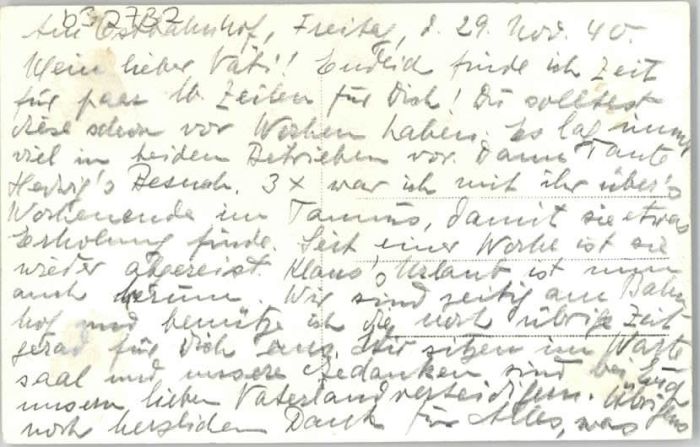 632732
Am Ostbahnhof, Freitag, d. 29. Nov. 40.
Mein lieber Väti! Endlich finde ich Zeit
für paar Zeilen für Dich! Du solltest
diese schon vor Wochen haben. Es lag immer
viel in beiden Betrieben vor. Dann Tante
Hedwig's Besuch. 3 x war ich mit ihr über's
Wochenende im Taunus, damit sie etwas
Erholung finde. Seit einer Woche ist sie
wieder abgereist. Klaus's Urlaub ist nun
auch herum. Wir sind zeitig am Bahn
hof und benütze ich die noch übrige Zeit
gerad für Dich aus. Wir sitzen im Warte
saal und unsere Gedanken sind bei Euch
unsern lieben Vaterlandverteidigern. Übrigens
noch herzlichen Dank für Alles, was